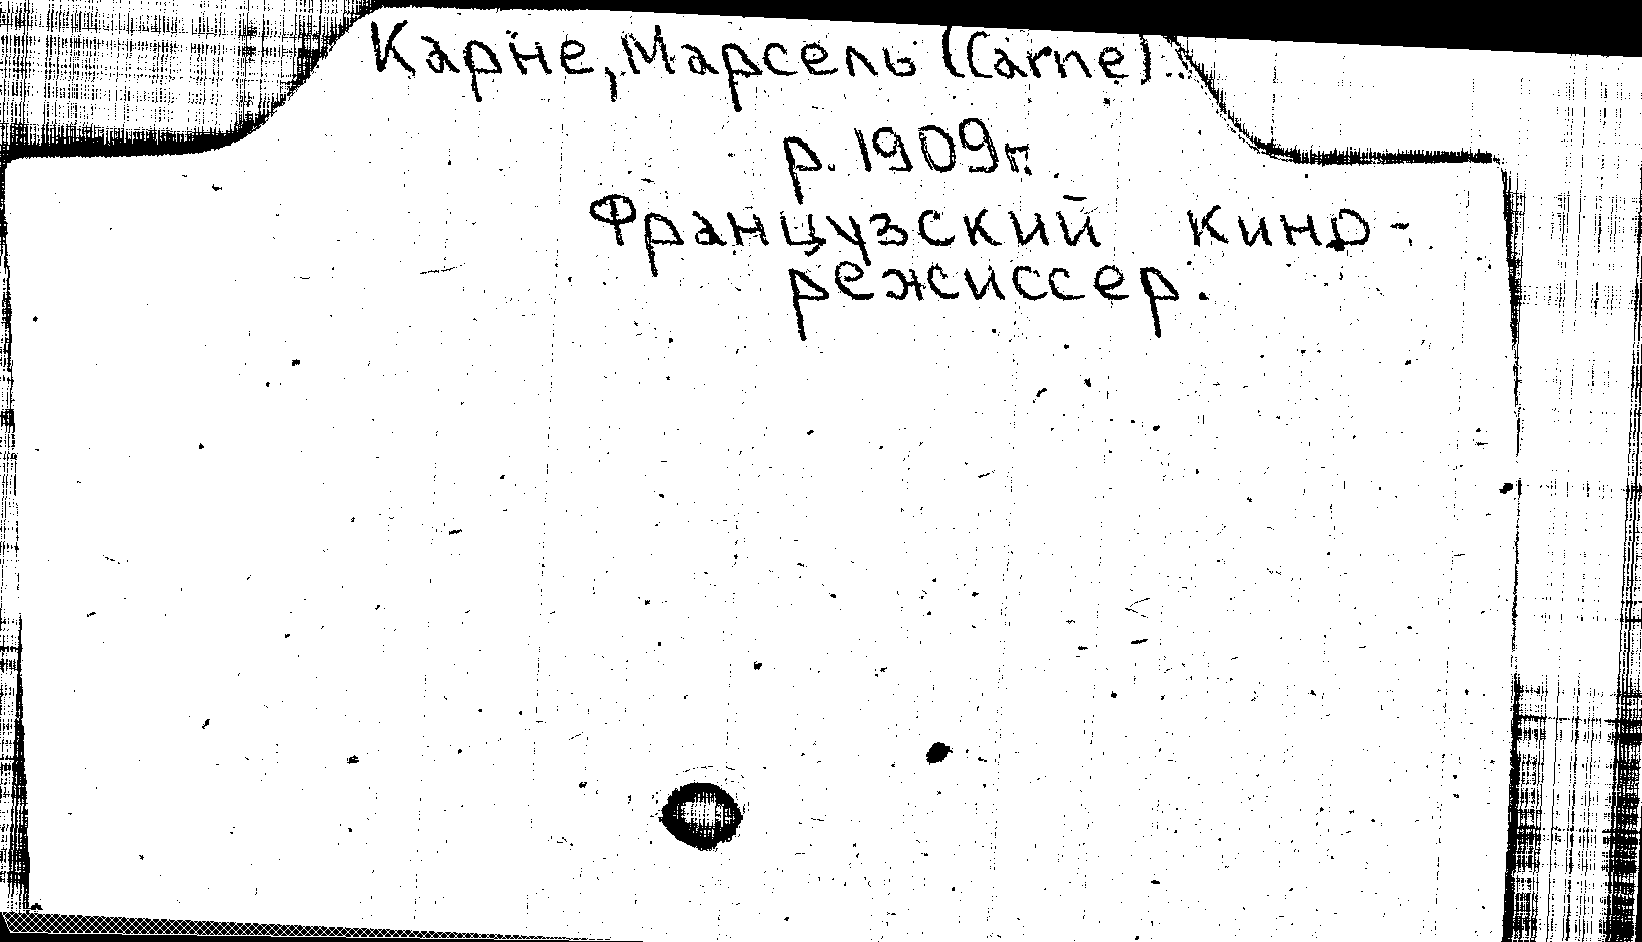 Карне, Марсель (Carne).
р. 1909г.
Французский кино-
режиссер.